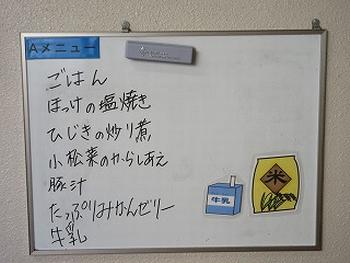 Aメニュー
ごはん
ほっけの塩焼き
ひじきの炒り煮
小松菜のからしあえ
豚汁
たっぷりみかんゼリー
牛乳
牛乳
米